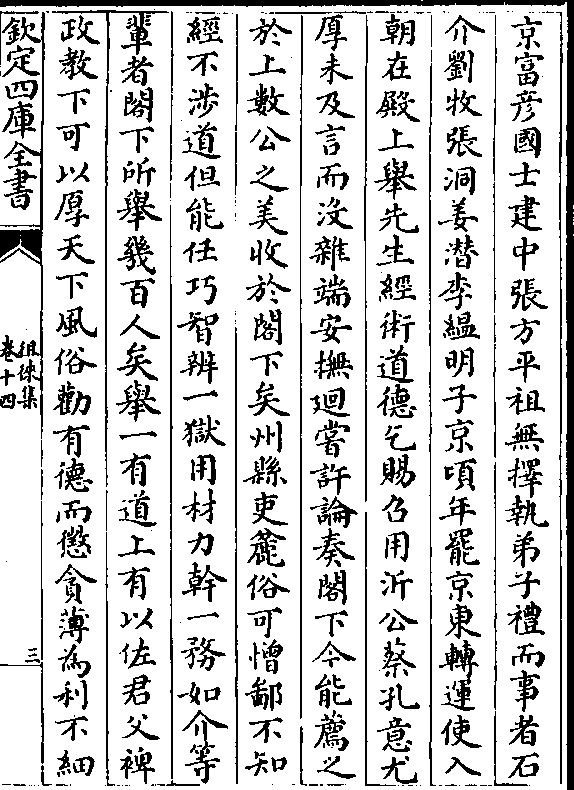 京富彦國士建中張方平祖無擇執弟子禮而事者石
介劉牧張洞姜潛李緼明子京頃年罷京東轉運使入
朝在殿上舉先生經術道德乞賜召用沂公蔡孔意尤
厚未及言而没雜端安撫迴嘗許論奏閣下今能薦之
於上數公之美收於閣下矣州縣吏麄俗可憎鄙不知
經不涉道但能任巧智辨一獄用材力幹一務如介等
輩者閣下所舉幾百人矣舉一有道上有以佐君父裨
政教下可以厚天下風俗勸有德而懲貪薄為利不細
欽定四庫全書
徂徠集
卷十四
三